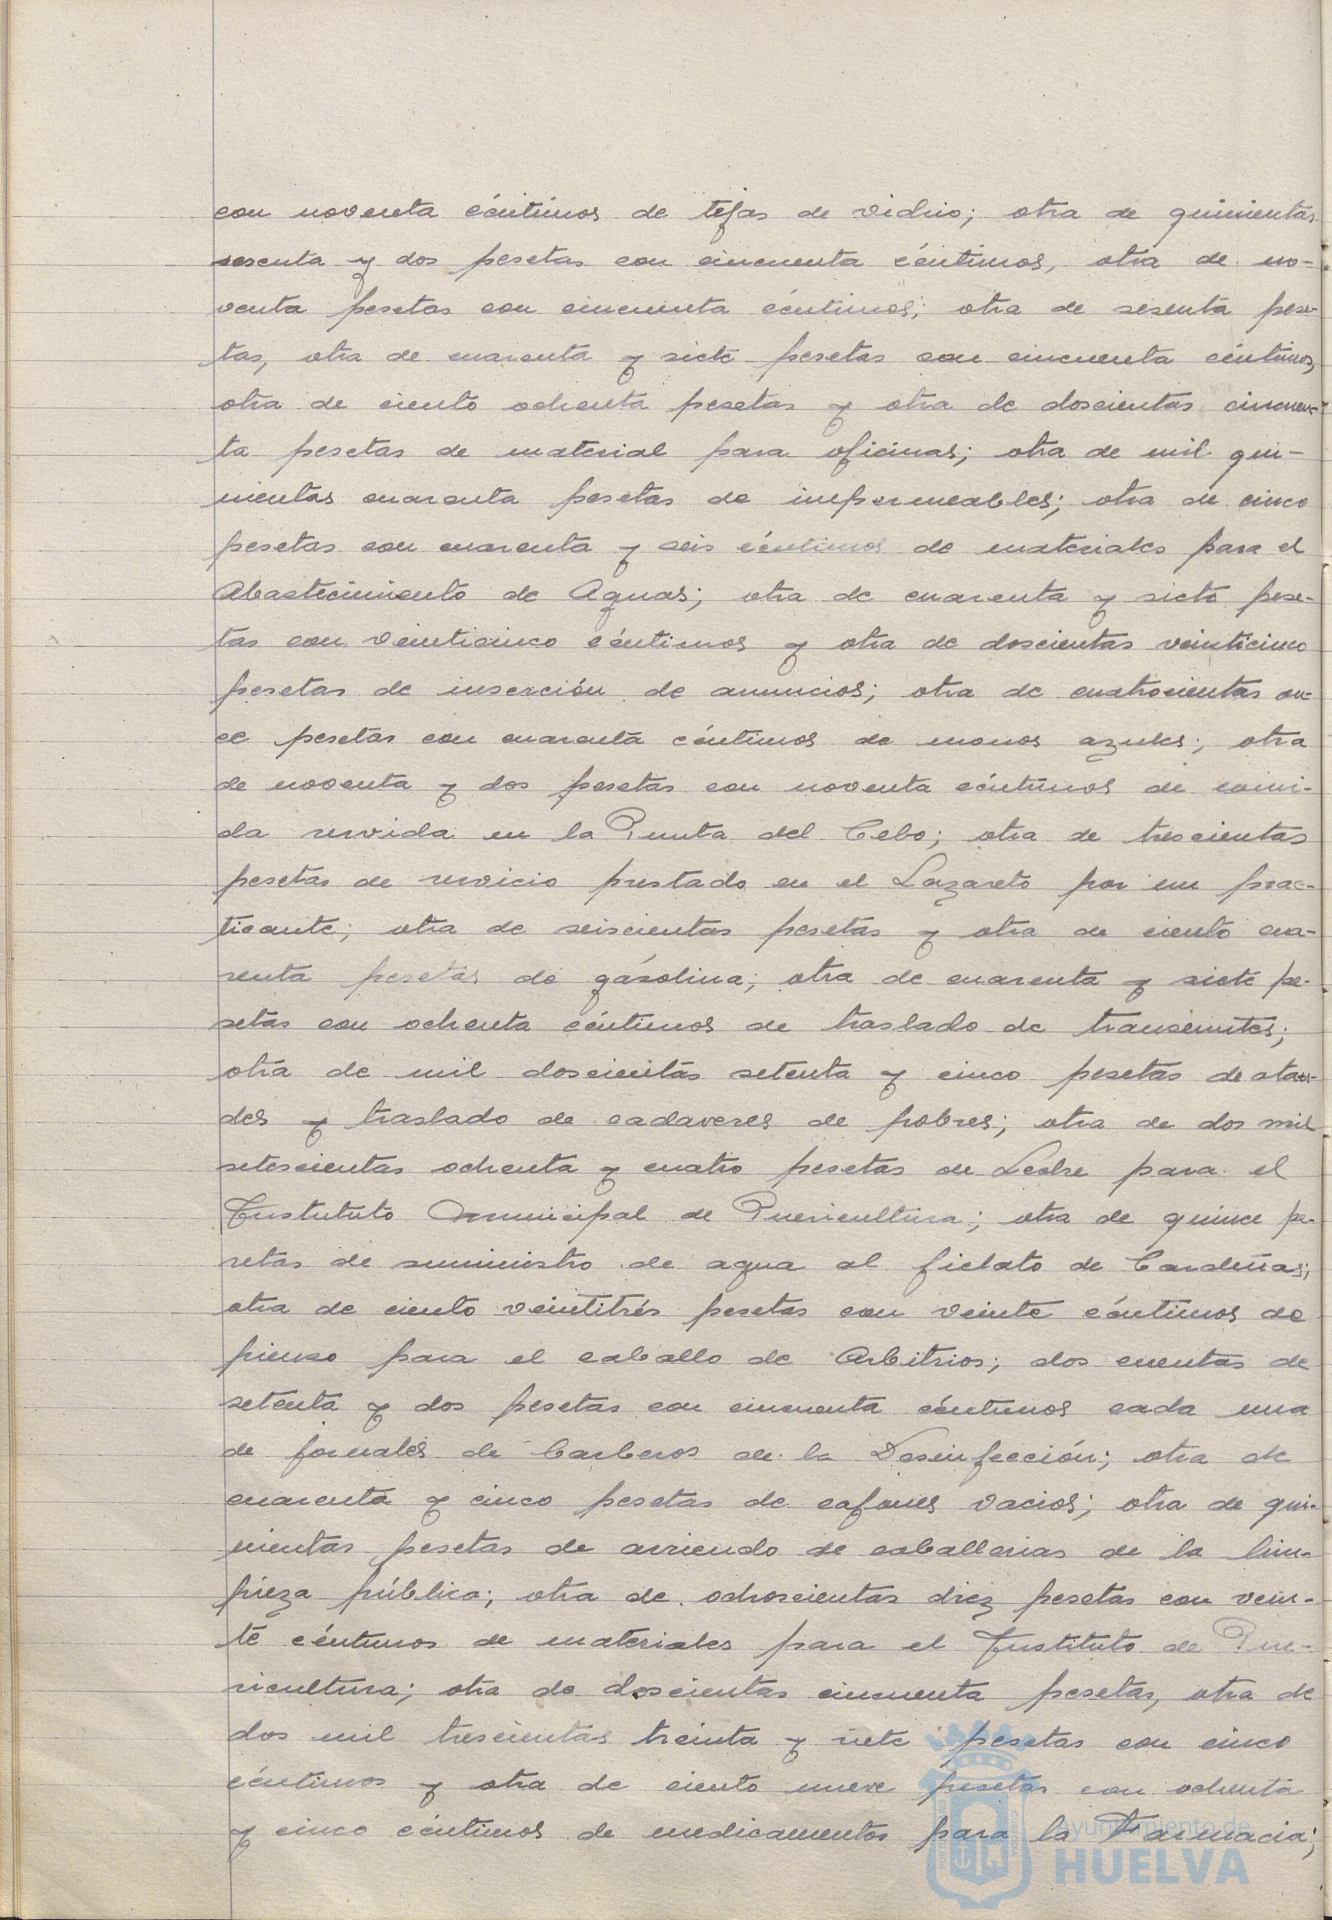 con noventa céntimos de tejas de vidrio; otra de quinientas
sesenta y dos pesetas con cincuenta céntimos, otra de no-
venta pesetas con cincuenta céntimos; otra de sesenta pese-
tas, otra de cuarenta y siete pesetas con cincuenta céntimos,
otra de ciento ochenta pesetas y otra de doscientas cincuen-
ta pesetas de material para oficinas; otra de mil qui-
nientas cuarenta pesetas de impermeables; otra de cinco
pesetas con cuarenta y seis céntimos de materiales para el
Abastecimiento de Aguas; otra de cuarenta y siete pese-
tas con veinticinco céntimos y otra de doscientas veinticinco
pesetas de inserción de anuncios; otra de cuatrocientas on-
ce pesetas con cuarenta céntimos de monos azules; otra
de noventa y dos pesetas con noventa céntimos de comi-
da servida en la Punta del Cebo; otra de trescientas
pesetas de servicio prestado en el Lazareto por un prac-
ticante; otra de seiscientas pesetas y otra de ciento cua-
renta pesetas de gasolina; otra de cuarenta y siete pe-
setas con ochenta céntimos de traslado de transeuntes;
otra de mil doscientas setenta y cinco pesetas de ataú-
des y traslado de cadaveres de pobres; otra de dos mil
setescientas ochenta y cuatro pesetas de Leche para el
Instituto Municipal de Puericultura; otra de quince pe-
setas de suministro de agua al fielato de Cardeñas;
otra de ciento veintitrés pesetas con veinte céntimos de
pienso para el caballo de Arbitrios; dos cuentas de
setenta y dos pesetas con cincuenta céntimos cada una
de jornales de Barberos de la Desinfección; otra de
cuarenta y cinco pesetas de cajones vacios; otra de qui-
nientas pesetas de arriendo de caballerias de la lim-
pieza pública; otra de ochoscientas diez pesetas con vein-
te céntimos de materiales para el Instituto de Pue-
ricultura; otra de doscientas cincuenta pesetas, otra de
dos mil trescientas treinta y siete pesetas con cinco
céntimos y otra de ciento nueve pesetas con ochenta
y cinco céntimos de medicamentos para la Farmacia;
Ayuntamiento de
HUELVA